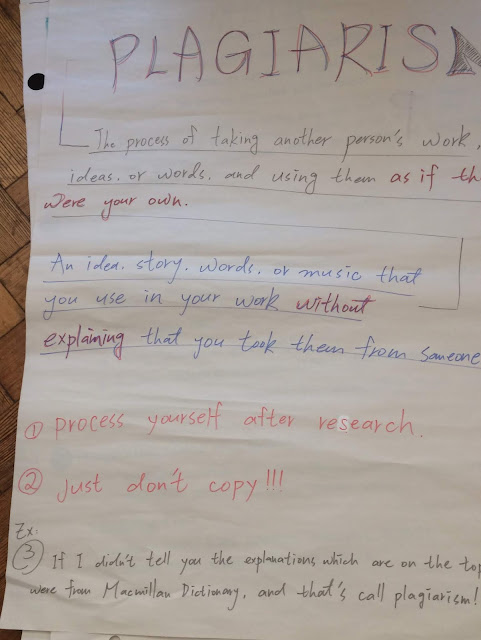 PLAGIARIS
The process of taking another person's work,
ideas, or words, and using them as if th
were your own.
An idea, story, words, or music that
you use in your work without
explaining that you took them from someone
① process yourself after research.
② just don't copy!!!
Ex.
③ If I didn't tell you the explanations which are on the top
were from Macmillan Dictionary, and that's call plagiarism!